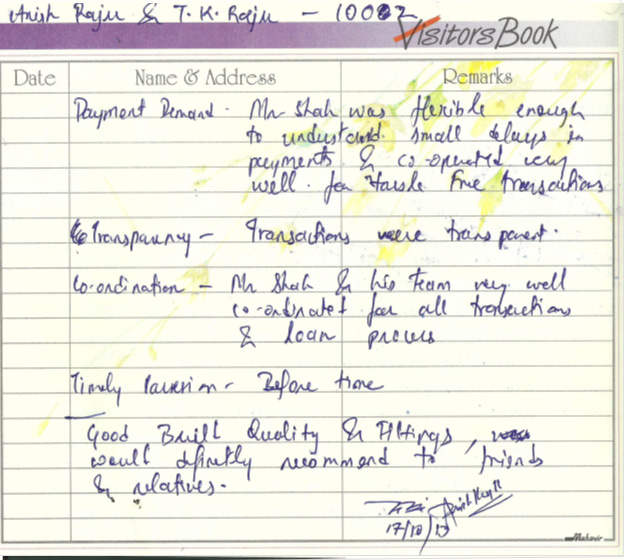 Anish Raju & T. K. Raju - 10002
VisitorsBook
Date Name & Address Remarks
Payment Demand - Mr Shah was flexible enough
to understand small delays in
payments & co-operated very
well. for Hassle Free transactions
Transparency - Transactions were transparent.
Co-ordination - Mr Shah & his Team very well
co-ordinated for all transactions
& loan process
Timely - Before time
Good Built Quality & Fittings,
would definetly recommend to friends
& relatives.
17/10/13
Mahavir